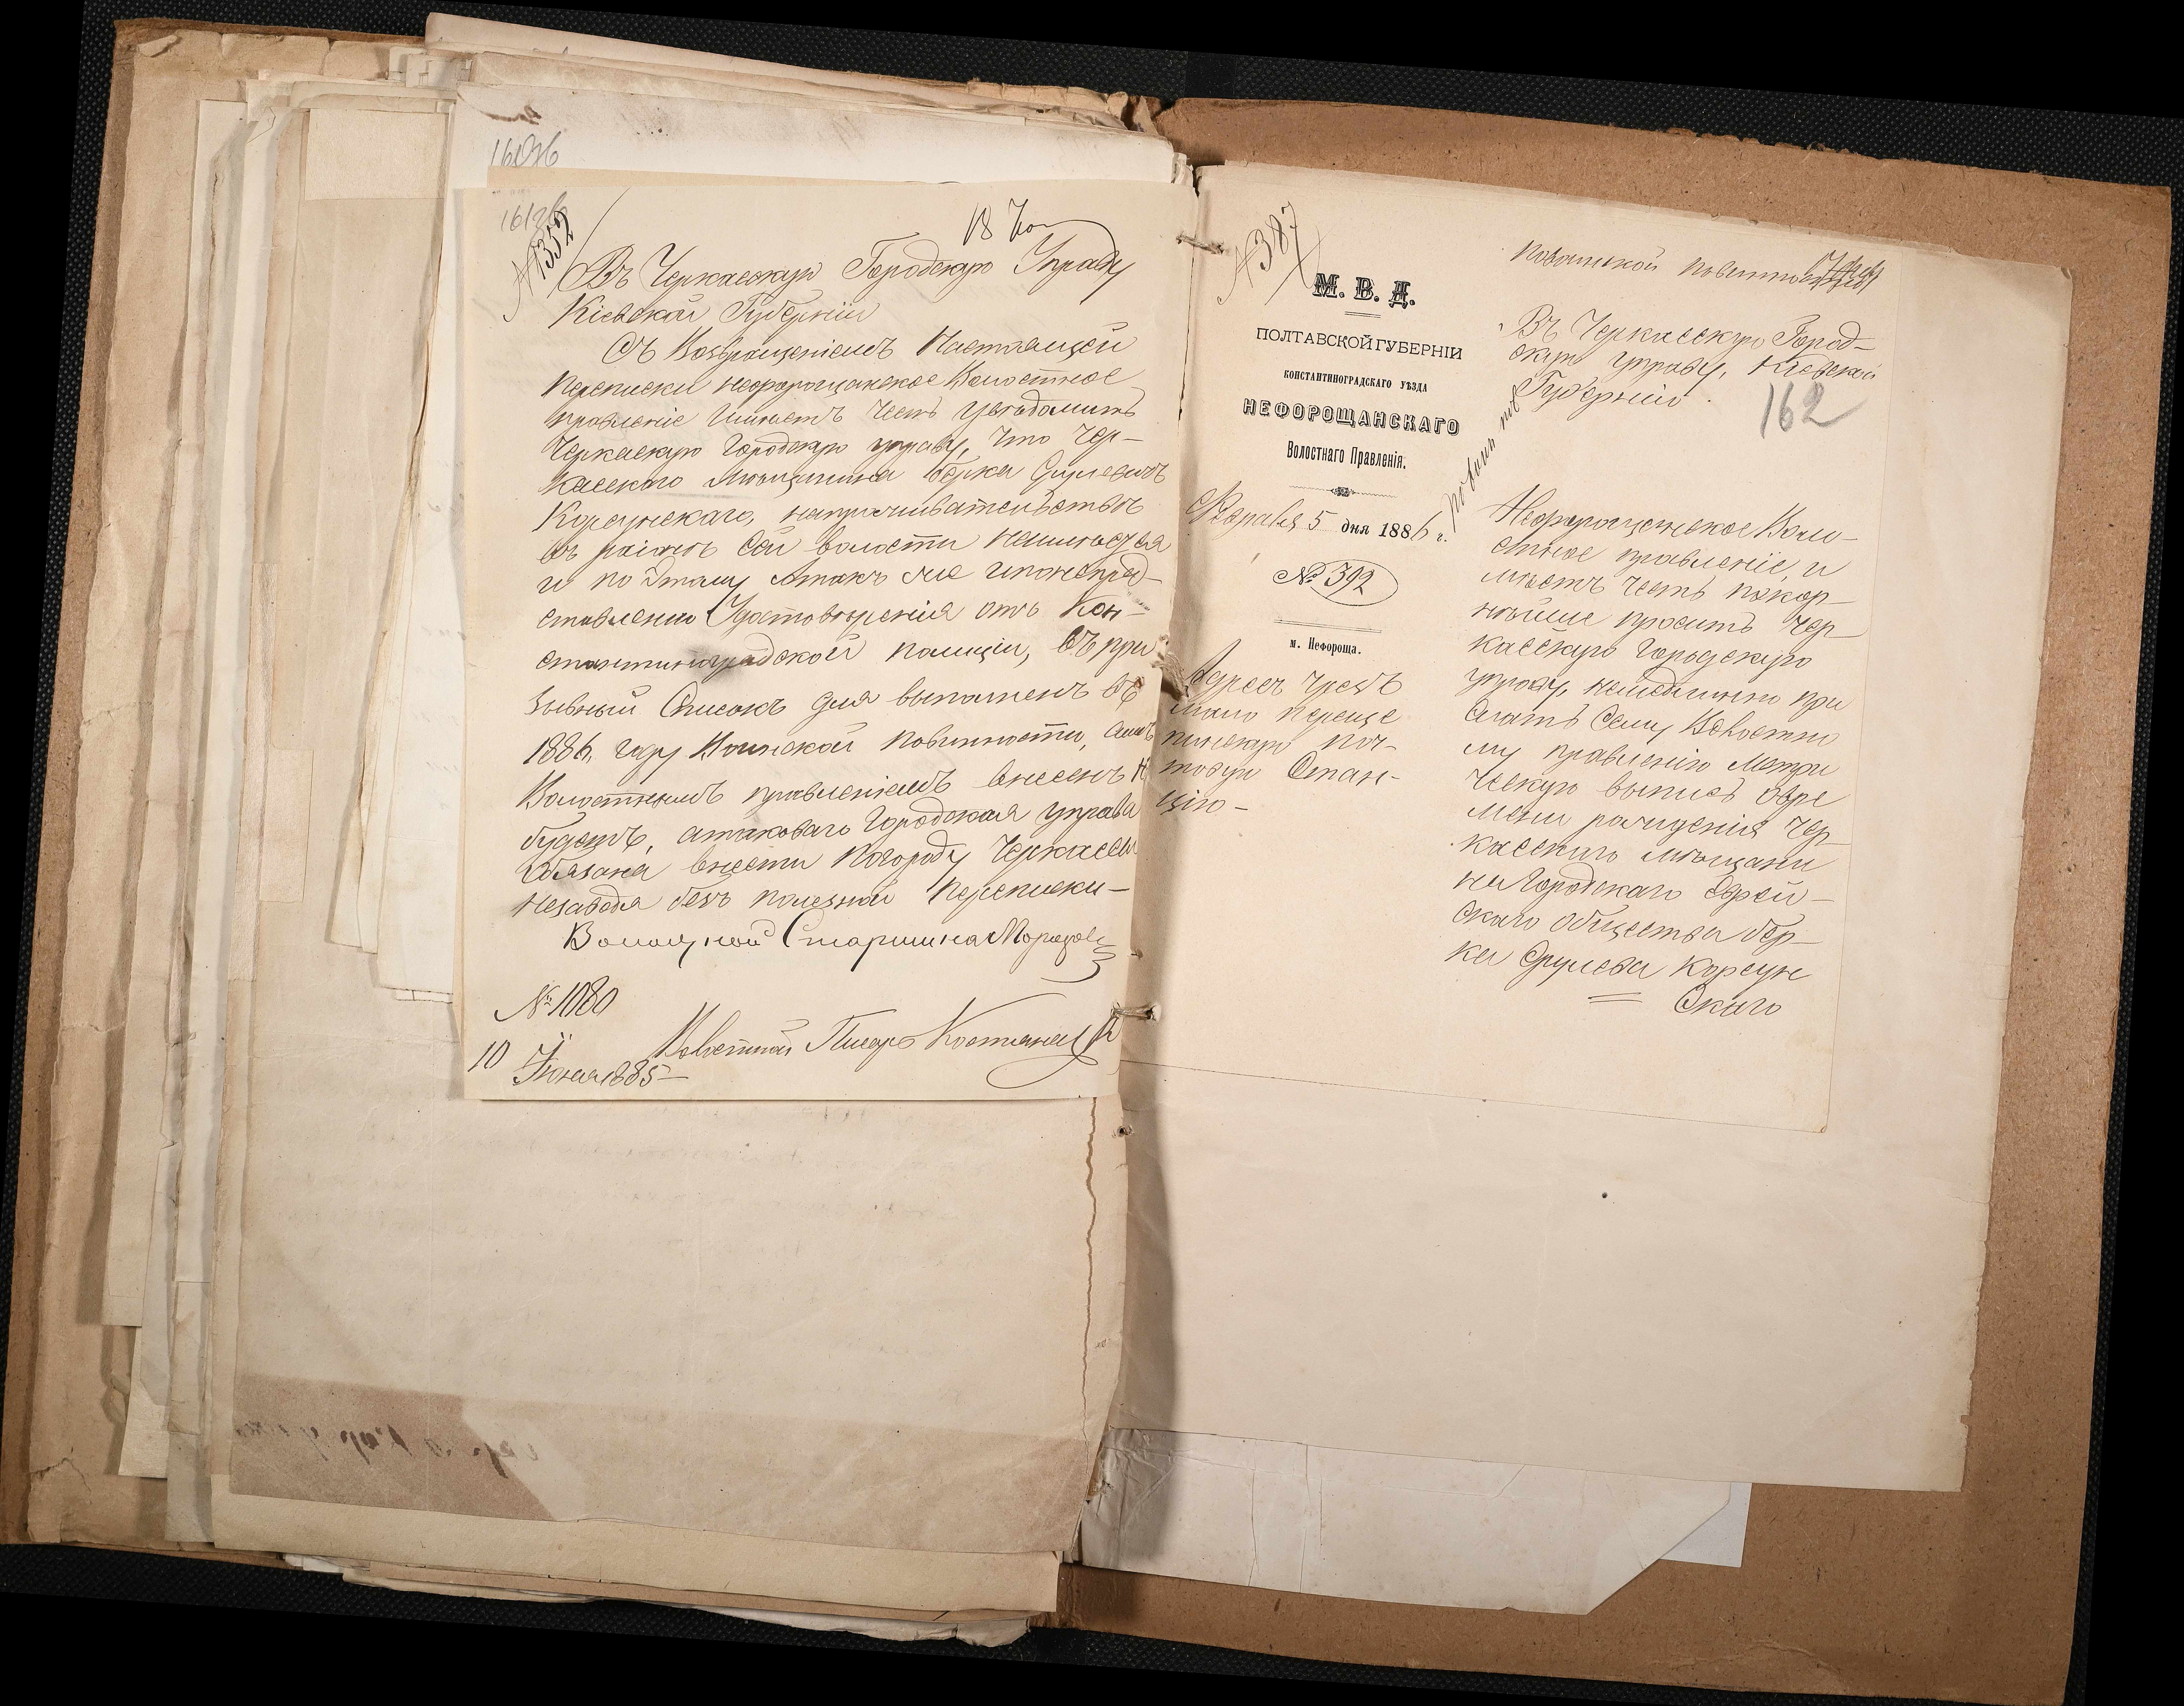 161об
№ 1352
18 Іюн
Въ Черкасскую Городскую Управу
Кіевской Губерніи
Съ Возвращеніемъ Настоящей
переписки нефорощанское Волостное
правленіе Имѣетъ честь увѣдомить
Черкаскую Городскую управу, что Чер-
касского мѣщанина Берка Срулевичъ
Корсунскаго, напроживательствѣ
въ раіонѣ Сей волости неимѣется
и по Этому Атакъ же
ставленію Удостовѣренія отъ Кон-
стантиноградской полиціи, Въ при
зывный Списокъ для выполненъ въ
1886, году Воинской повинности,
Волостнымъ правленіемъ внесенъ н
будетъ, атаковаго Городская управа
Обязана внести погороду Черкассы
незаводя безъ полезной переписки-
Волосной Старшина Морозов
№ 1080
Волостной Писарь
10 Іюня 1885-
№ 387
М. В. Д.
ПОЛТАВСКОЙ ГУБЕРНІИ
КОНСТАНТИНОГРАДСКАГО УѢЗДА
НЕФОРОЩАНСКАГО
Волостнаго Правленія.
Февраля 5 дня 1886 г.
№ 392
м. Нефороща.
Адресъ чрезъ
мало Переще
пинскую поч-
товую Стан-
цію-
повинности
Въ Черкасскую Город-
скую управу, Кіевской
Губерніи.
162
Нефорощанское Воло-
стное правленіе, и
мѣетъ честь покор-
нѣйше просить Чер-
касскую Городскую
управу, немедлѣнно при
слать Сему Волостно
му правленію Метри
ческую выпись овре
мени рожденія Чер-
касскаго мѣщани
на Городскаго Еврей-
скаго общества Бер-
ка Срулева Корсун
скаго